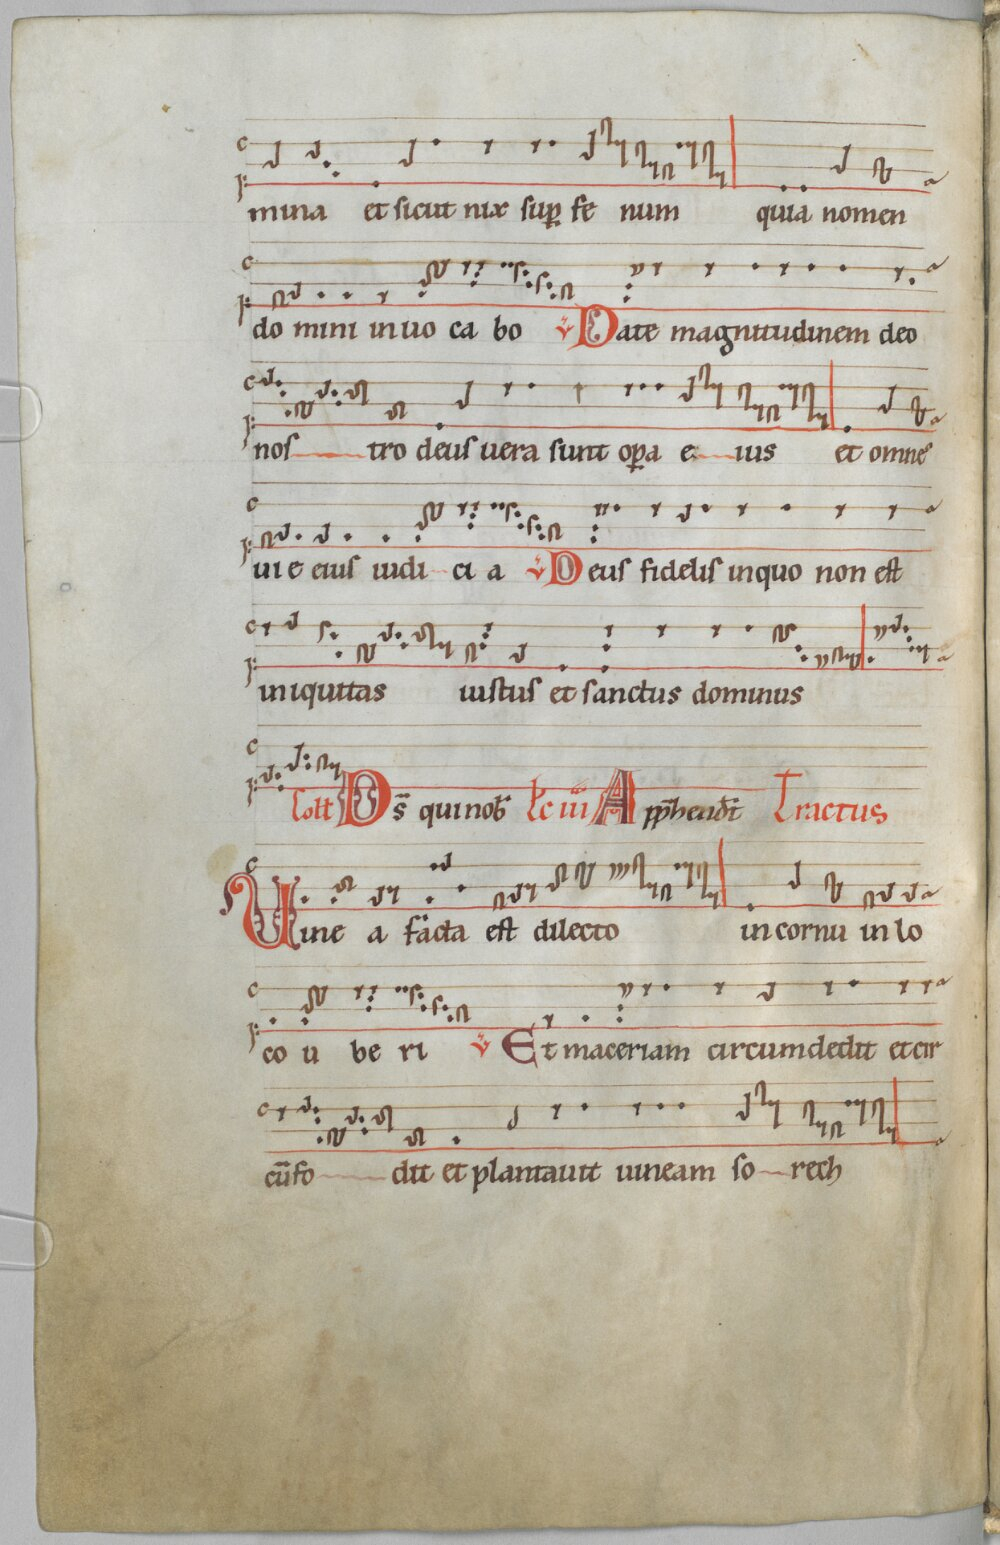 mina et sicut nix sup fe num quia nomen
do mini inuo ca bo v Date magnitudinem deo
nos tro deus uera sunt opa e ius et omnes
uie eius iudi ci a v Deus fidelis inquo non est
iniquitas iustus et sanctus dominus
Coll Ds qui nob Lc iiii Apphendt Tractus
Uine a facta est dilecto in cornu in lo
co u be ri v Et maceriam circumdedit et cir
cūfo dit et plantauit uineam so rech